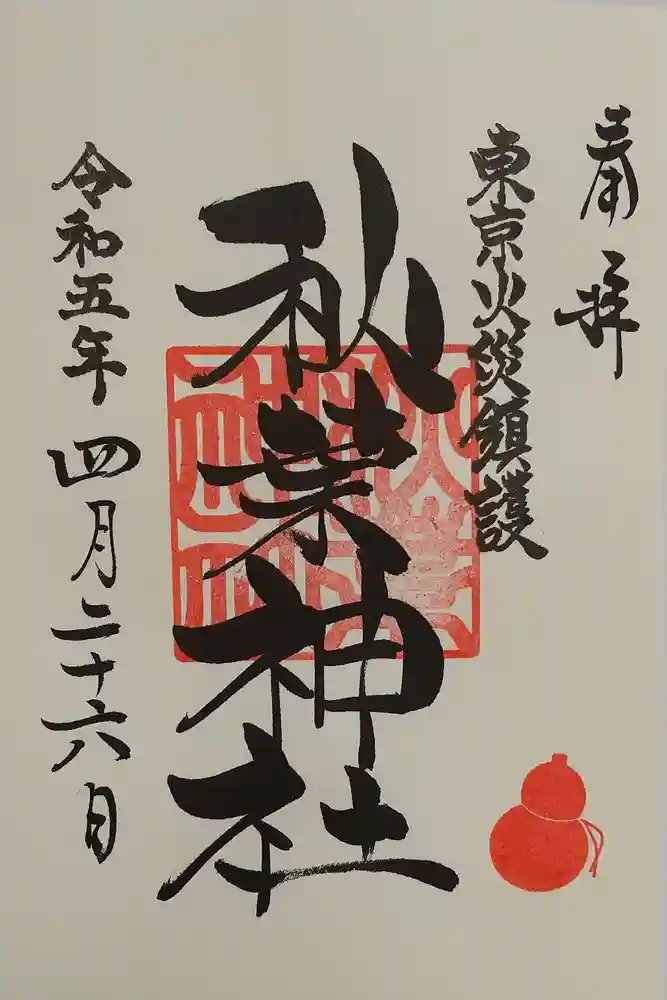 奉拝
東京火災鎮護
秋葉神社
令和五年 四月二十六日